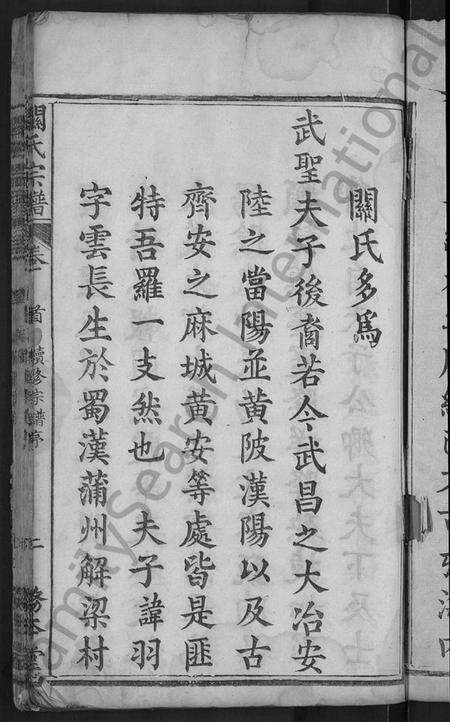 關氏多為
武聖夫子後裔若今武昌之大冶安
陸之當陽並黃陂漢陽以及古
齊安之麻城黃安等處皆是匪
特吾羅一支然也　夫子諱羽
字雲長生於蜀漢蒲州解梁村
關氏宗譜
卷一
首
續修宗譜序
二
務本堂
FamilySearch International